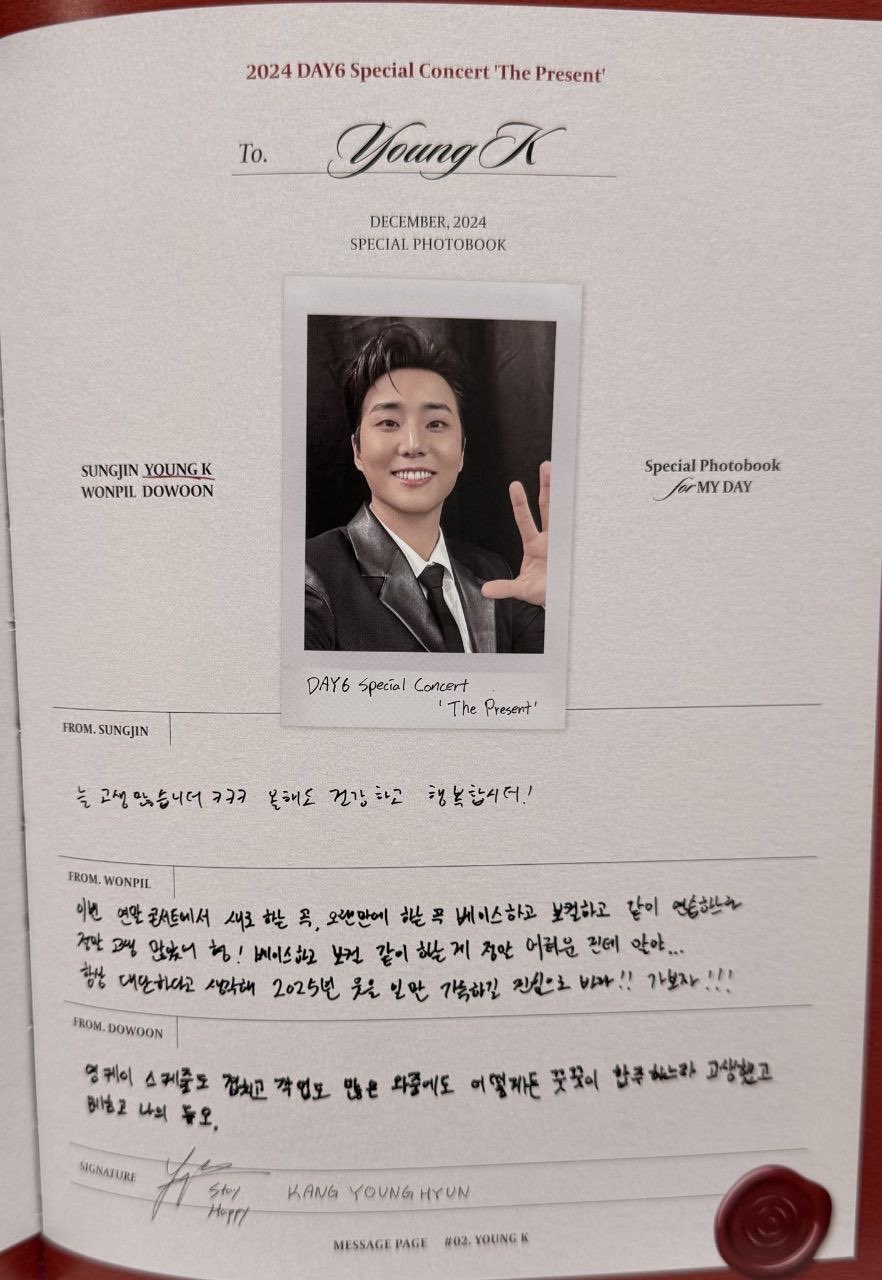 2024 DAY6 Special Concert 'The Present'
To. Young K
DECEMBER, 2024
SPECIAL PHOTOBOOK
SUNGJIN YOUNG K
WONPIL DOWOON
Special Photobook
for MY DAY
DAY6 Special Concert
'The Present'
FROM. SUNGJIN
늘 고생 많습니더 ㅋㅋㅋ 올해도 건강하고 행복합시더!
FROM. WONPIL
이번 연말 콘서트에서 새로 하는 곡, 오랜만에 하는 곡 베이스하고 보컬하고 같이 연습하느라
정말 고생 많았어 형! 베이스하고 보컬 같이 하는 게 정말 어려운 건데 말야...
항상 대단하다고 생각해 2025년 웃을 일만 가득하길 진심으로 바라!! 가보자!!!
FROM. DOWOON
영케이 스케줄도 겹치고 작업도 많은 와중에도 어떻게든 꿋꿋이 합주하느라 고생했고
나의
SIGNATURE
Stay
Happy
KANG YOUNG HYUN
MESSAGE PAGE #02. YOUNG K